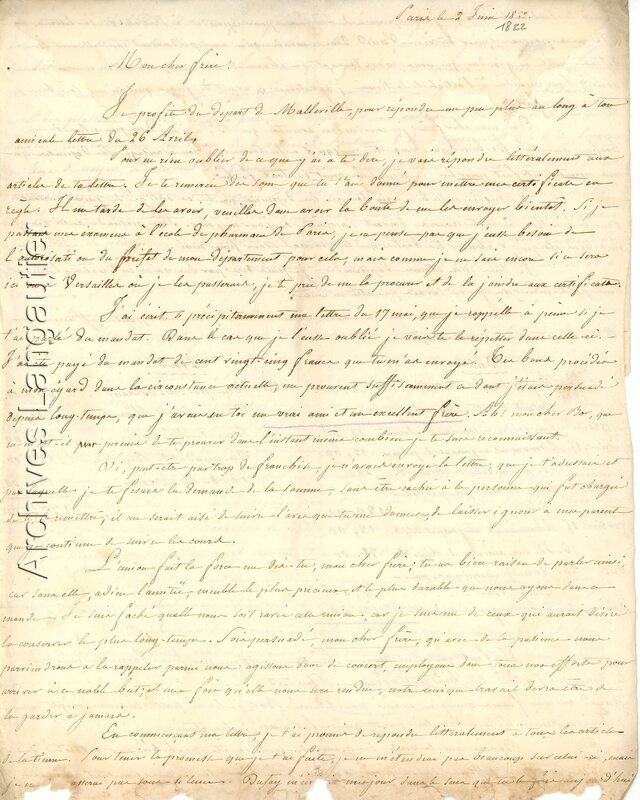 Paris le 2 Juin 1822.
1822
Mon cher frère.
Je profite du départ de Malleville, pour répondre un peu plus au long à ton
amicale lettre du 26 Avril.
Pour ne rien oublier de ce que j'ai à te dire, je vais répondre littéralement aux
articles de ta lettre. Je te remercie des soins que tu t'es donné pour mettre mes certificats en
règle. Il me tarde de les avoir, veuilles donc avoir la bonté de me les envoyer bientot. Si je
passais mes examens à l'école de pharmacie de Paris, je ne pense pas que j'eusse besoin de
l'autorisation du préfet de mon département pour cela, mais comme je ne sais encore si ce sera
ici ou Versailles où je les passerais, je te prie de me la procurer et de la joindre aux certificats.
J'ai écrit si précipitamment ma lettre du 17 mai, que je rappelle à peine si je
t'ai parlé du mandat. Dans le cas que je l'eusse oublié je vais te le repetter dans celle-ci.
J'ai été payé du mandat de cent vingt-cinq francs que tu m'as envoyé. Tes bons procédés
à mon égard dans la circonstance actuelle, me prouvent suffisamment ce dont j'étais persuadé
depuis long-temps, que j'avais en toi un vrai ami et un excellent frère. Ah! mon cher Bor, que
ne m'est-il permis de te prouver dans l'instant même combien je te suis reconnaissant.
Si, peut-être par trop de franchise, je n'avais envoyé la lettre, que je t'adressais et
par laquelle je te fesais la demande de la somme, sans être cachée à la personne qui fut chargée
de te remettre; il me serait aisé de suivre l'avis que tu me donnes, de laisser ignorer à mes parens
que je continue de suivre les cours.
L'union fait la force me dis-tu, mon cher frère; tu as bien raison de parler ainsi,
car sans elle, adieu l'amitié, meuble le plus précieux et le plus durable que nous ayons dans ce
monde. Je suis faché qu'elle nous soit ravie cette union, car je suis un de ceux qui aurait désiré
la conserver le plus long-temps. Sois persuadé, mon cher frère, qu'avec de la patience nous
parviendrons à la rappeler parmi nous: agissons donc de concert, employons donc tous nos efforts pour
arriver à ce noble but; et une fois qu'elle nous sera rendue, notre unique travail devra être de
la garder à jamais.
En commençant ma lettre, je t'ai promis de répondre littéralement à tous les articles
de la tienne. Pour tenir la promesse que je t'ai faite, je ne m'étendrai pas beaucoup sur celui-ci, mais
je ne passerai pas sous silence. Dufay m'écrivit un jour dans le sens que tu le fais aujourd'hui
Archives Langautier